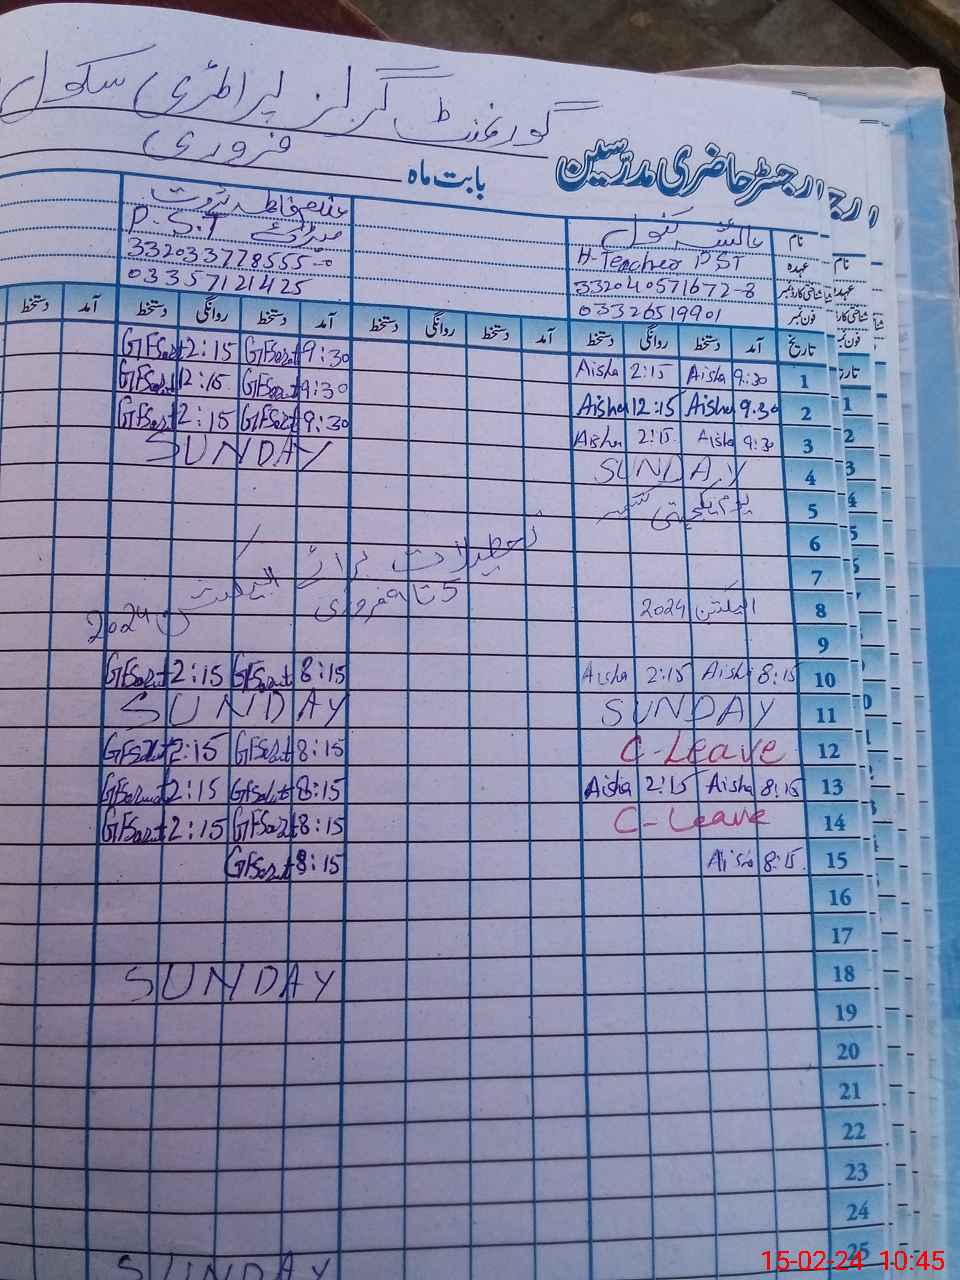 گورنمنٹ گرلز پرائمری سکول
رجسٹر حاضری مدرسین
بابت ماہ فروری
نام عائشہ کنول
عہدہ H-Teacher PST P-S.T
شناختی کارڈ نمبر 332040571672-8 332033778555-0
فون نمبر 03326519901 03357121425
تاریخ آمد دستخط روانگی دستخط آمد دستخط روانگی دستخط آمد دستخط روانگی دستخط آمد دستخط
1 9:30 Aisha 2:15 Aisha 9:30 2:15
2 9:30 Aisha 12:15 Aisha 9:30 12:15
3 9:30 Aisha 2:15 Aisha 9:30 2:15
4 SUNDAY SUNDAY
5 یوم یکجہتی کشمیر
6
7 تعطیلات برائے الیکشن
8 الیکشن 2024 5 تا 9 فروری 2024
9
10 8:15 Aisha 2:15 Aisha 8:15 2:15
11 SUNDAY SUNDAY
12 C-Leave 8:15 2:15
13 8:15 Aisha 2:15 Aisha 8:15 2:15
14 C-Leave 8:15 2:15
15 8:15 Aisha 8:15
16
17
18 SUNDAY
19
20
21
22
23
24
25 SUNDAY
15-02-24 10:45